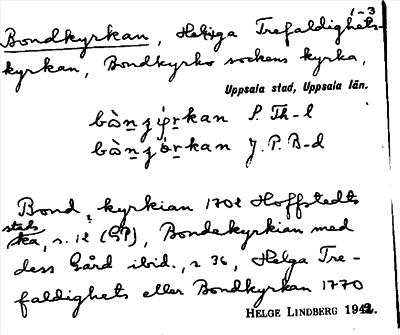 1-3
Bondkyrkan, Helga Trefaldighets-
kyrkan, Bondkyrko sockens kyrka,
Uppsala stad, Uppsala län.
kan S. Th-l
kan J. P. B-d
Bond kyrkian 1702 Hoffstedts
s. 12 (GP), Bondekyrkian med
dess Gård ibid., s. 36, Helga Tre-
faldighets eller Bondkyrkan 1770
HELGE LINDBERG 1942.